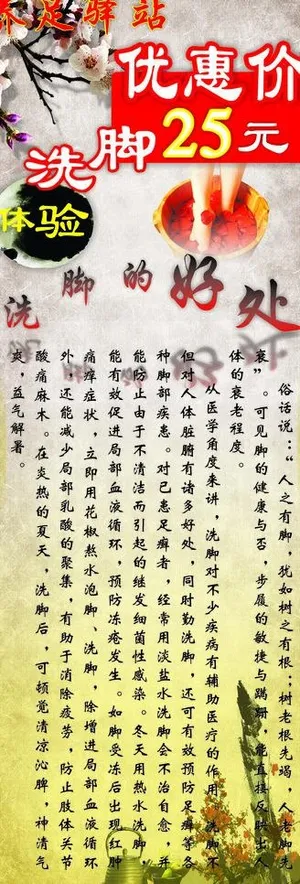 养足驿站
优惠价
洗脚25元
体验
洗脚的好处
俗话说："人之有脚，犹如树之有根；树老根先竭，人老脚先
衰"。可见脚的健康与否，步履的敏捷与蹒跚，能直接反映出人
体的衰老程度。
从医学角度来讲，洗脚对不少疾病有辅助医疗的作用，洗脚不
但对人体脏腑有诸多好处，同时勤洗脚，还可有效预防足癣等各
种脚部疾患。对已患足癣者，经常用淡盐水洗脚会不治自愈，并
能防止由于不清洁而引起的继发细菌性感染。冬天用热水洗脚，
能有效促进局部血液循环，预防冻疮发生。如脚受冻后出现红肿
痛痒症状，立即用花椒熬水泡脚、洗脚，除增进局部血液循环
外，还能减少局部乳酸的聚集，有助于消除疲劳，防止肢体关节
酸痛麻木。在炎热的夏天，洗脚后，可顿觉清凉沁脾，神清气
爽，益气解暑。